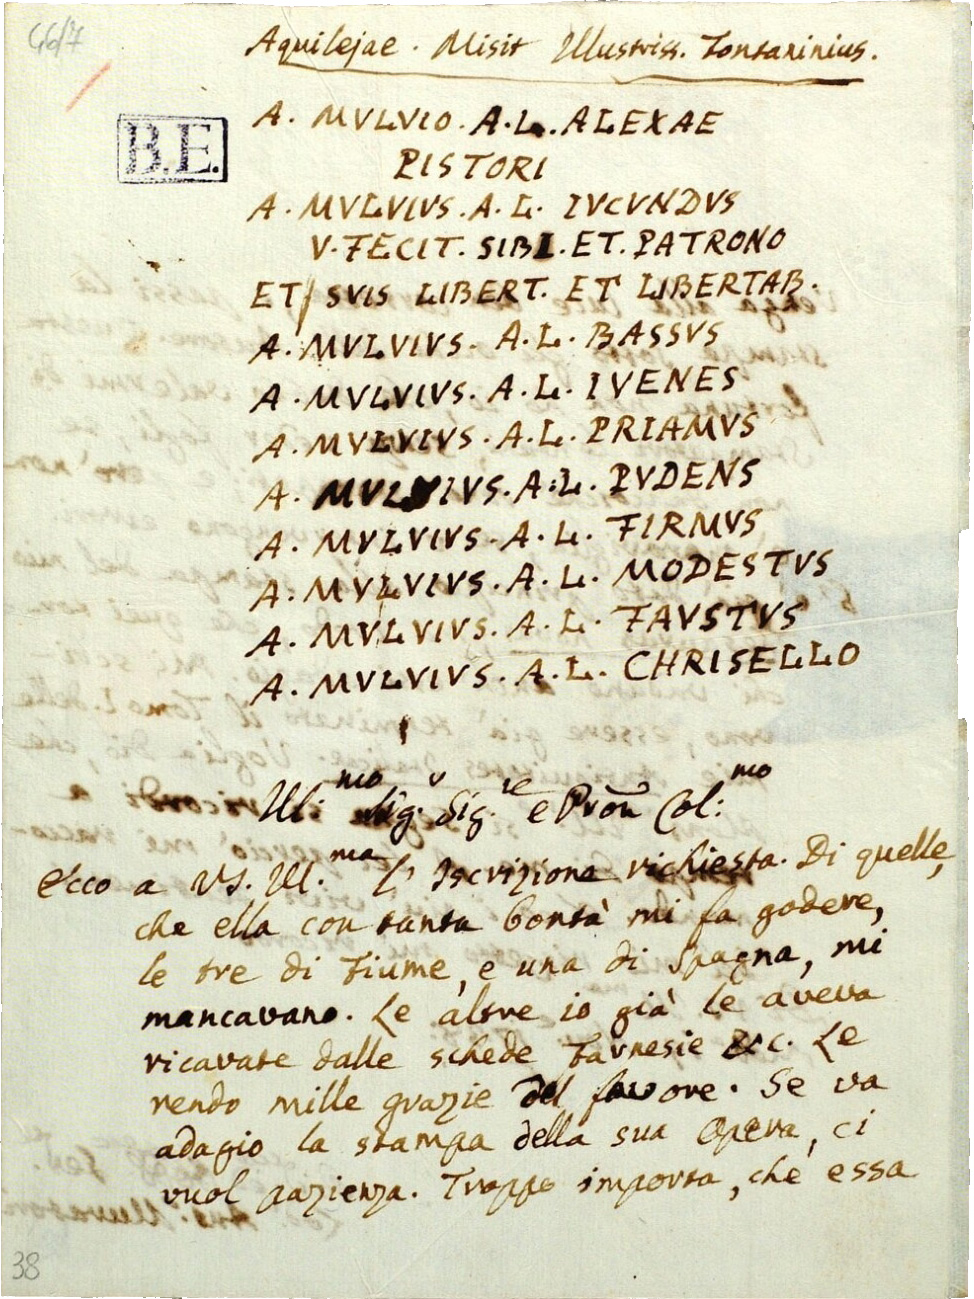 46/7
Aquilejae. Misit Illustriss. Fontaninius.
B.E.
A. MVLVIO. A. L. ALEXAE
PISTORI
A. MVLVIVS. A. L. IVCVNDVS
V. FECIT. SIBI. ET. PATRONO
ET SVIS LIBERT. ET LIBERTAB.
A. MVLVIVS. A. L. BASSVS
A. MVLVIVS. A. L. IVENES
A. MVLVIVS. A. L. PRIAMVS
A. MVLVIVS. A. L. PVDENS
A. MVLVIVS. A. L. FIRMVS
A. MVLVIVS. A. L. MODESTVS
A. MVLVIVS. A. L. FAVSTVS
A. MVLVIVS. A. L. CHRISELLO
Ill:mo Sig.r Sig.re e Pron Col:mo
Ecco a VS. Ill.ma l'Iscrizione richiesta. Di quelle,
che ella con tanta bontà mi fa godere,
le tre di Fiume, e una di Spagna, mi
mancavano. Le altre io già le aveva
ricavate dalle schede Farnesie &c. Le
rendo mille grazie del favore. Se va
adagio la stampa della sua Opera, ci
vuol pazienza. Troppo importa, che essa
38